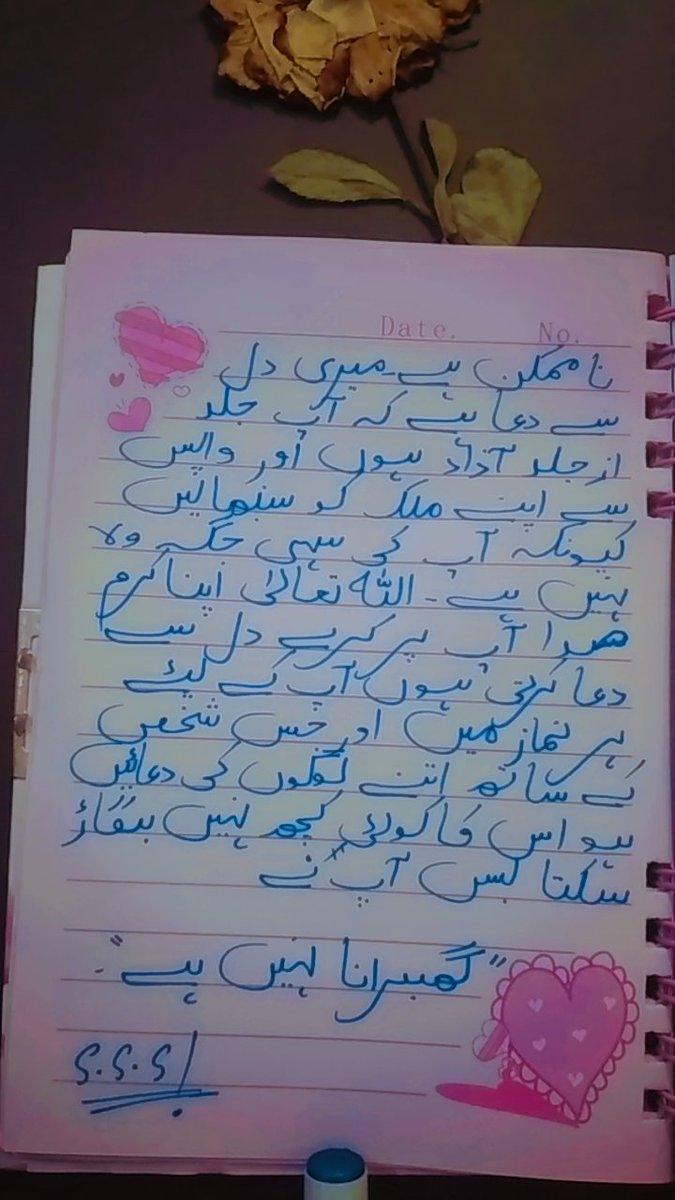 Date. No.
نا ممکن ہے۔ میری دل
سے دعا ہے کہ آپ جلد
از جلد آذاد ہوں اور واپس
سے اپنے ملک کو سنبھالیں
کیونکہ آپ کی سہی جگہ وہ
نہیں ہے۔ اللہ تعالیٰ اپنا کرم
آپ پر کرے دل سے
دعا کرتی ہوں آپ کے لیئے
ہر نماز میں اور جس شخص
کے ساتھ اتنے لوگوں کی دعائیں
ہو اس کا کوئی کچھ نہیں بگاڑ
سکتا بس آپ نے
"گھبرانا نہیں ہے"۔
S.S.S